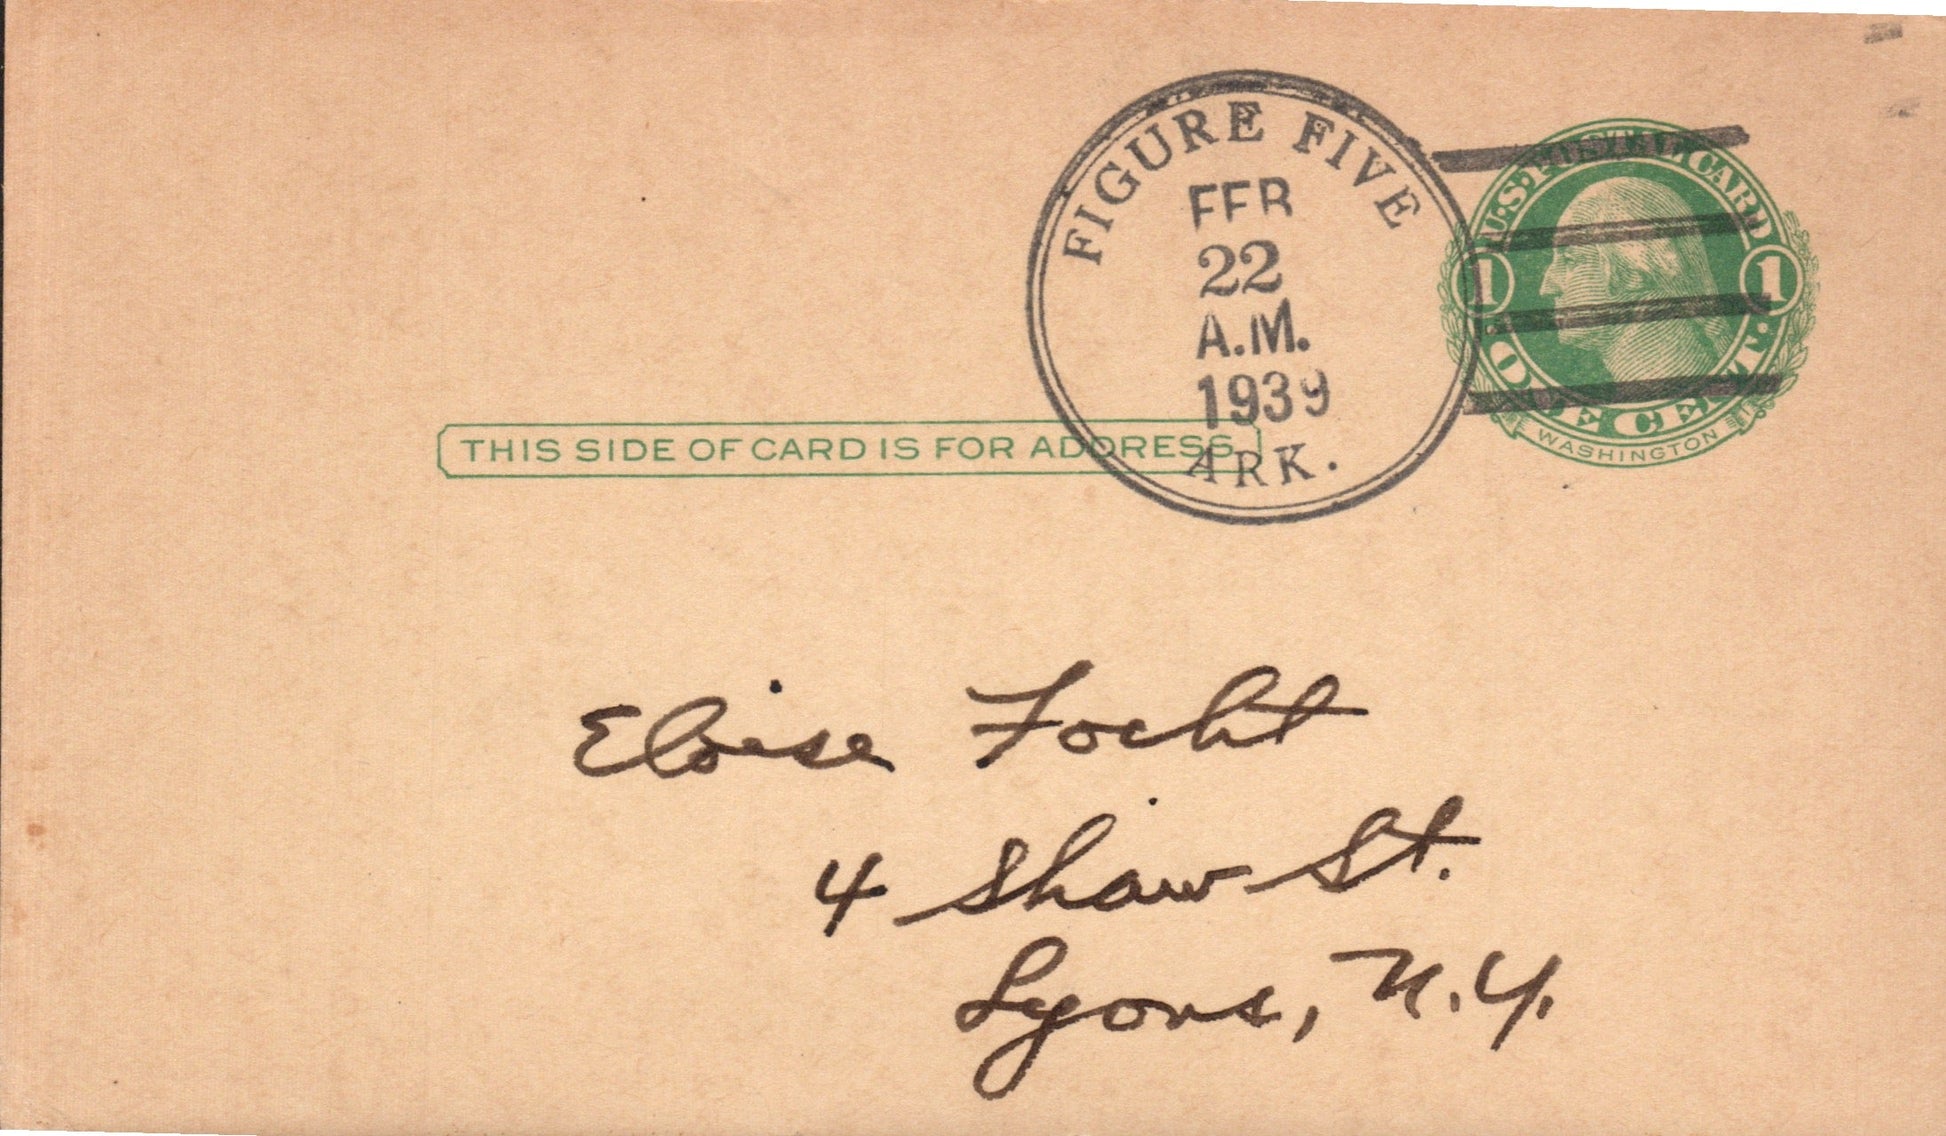 FIGURE FIVE
FEB
22
A.M.
1939
ARK.
U.S. POSTAL CARD
1 1
ONE CENT
WASHINGTON
THIS SIDE OF CARD IS FOR ADDRESS
Eloise Focht
4 Shaw St.
Lyons, N.Y.